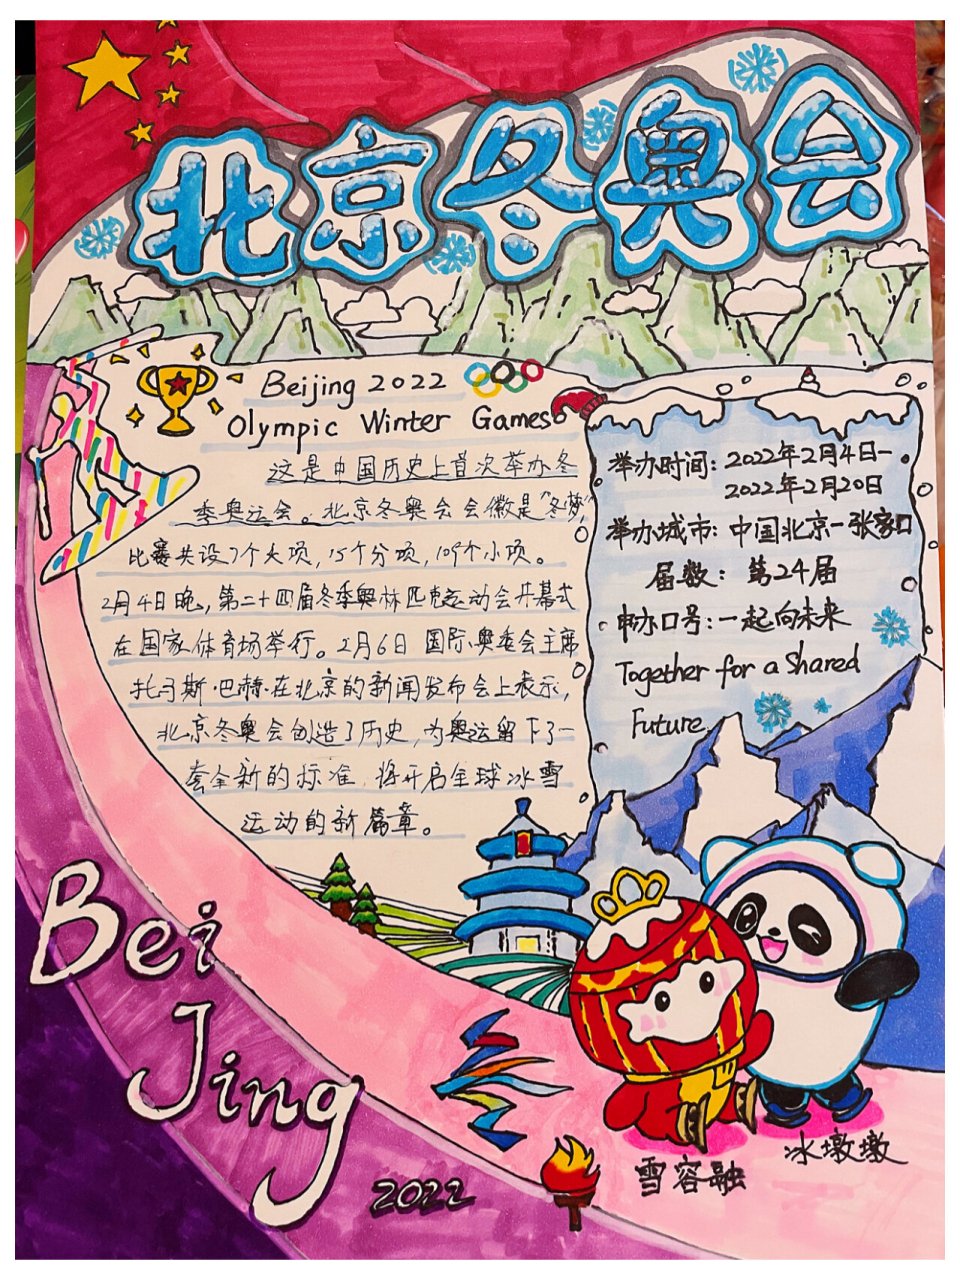 北京冬奥会
Beijing 2022
Olympic Winter Games
这是中国历史上首次举办冬
季奥运会。北京冬奥会会徽是“冬梦”
比赛共设7个大项，15个分项，109个小项。
2月4日晚，第二十四届冬季奥林匹克运动会开幕式
在国家体育场举行。2月6日 国际奥委会主席
托马斯·巴赫·在北京的新闻发布会上表示，
北京冬奥会创造了历史，为奥运留下了一
套全新的标准，将开启全球冰雪
运动的新篇章。
举办时间：2022年2月4日-
2022年2月20日
举办城市：中国北京-张家口
届数：第24届
申办口号：一起向未来
Together for a Shared
Future
Bei
Jing
2022
雪容融
冰墩墩